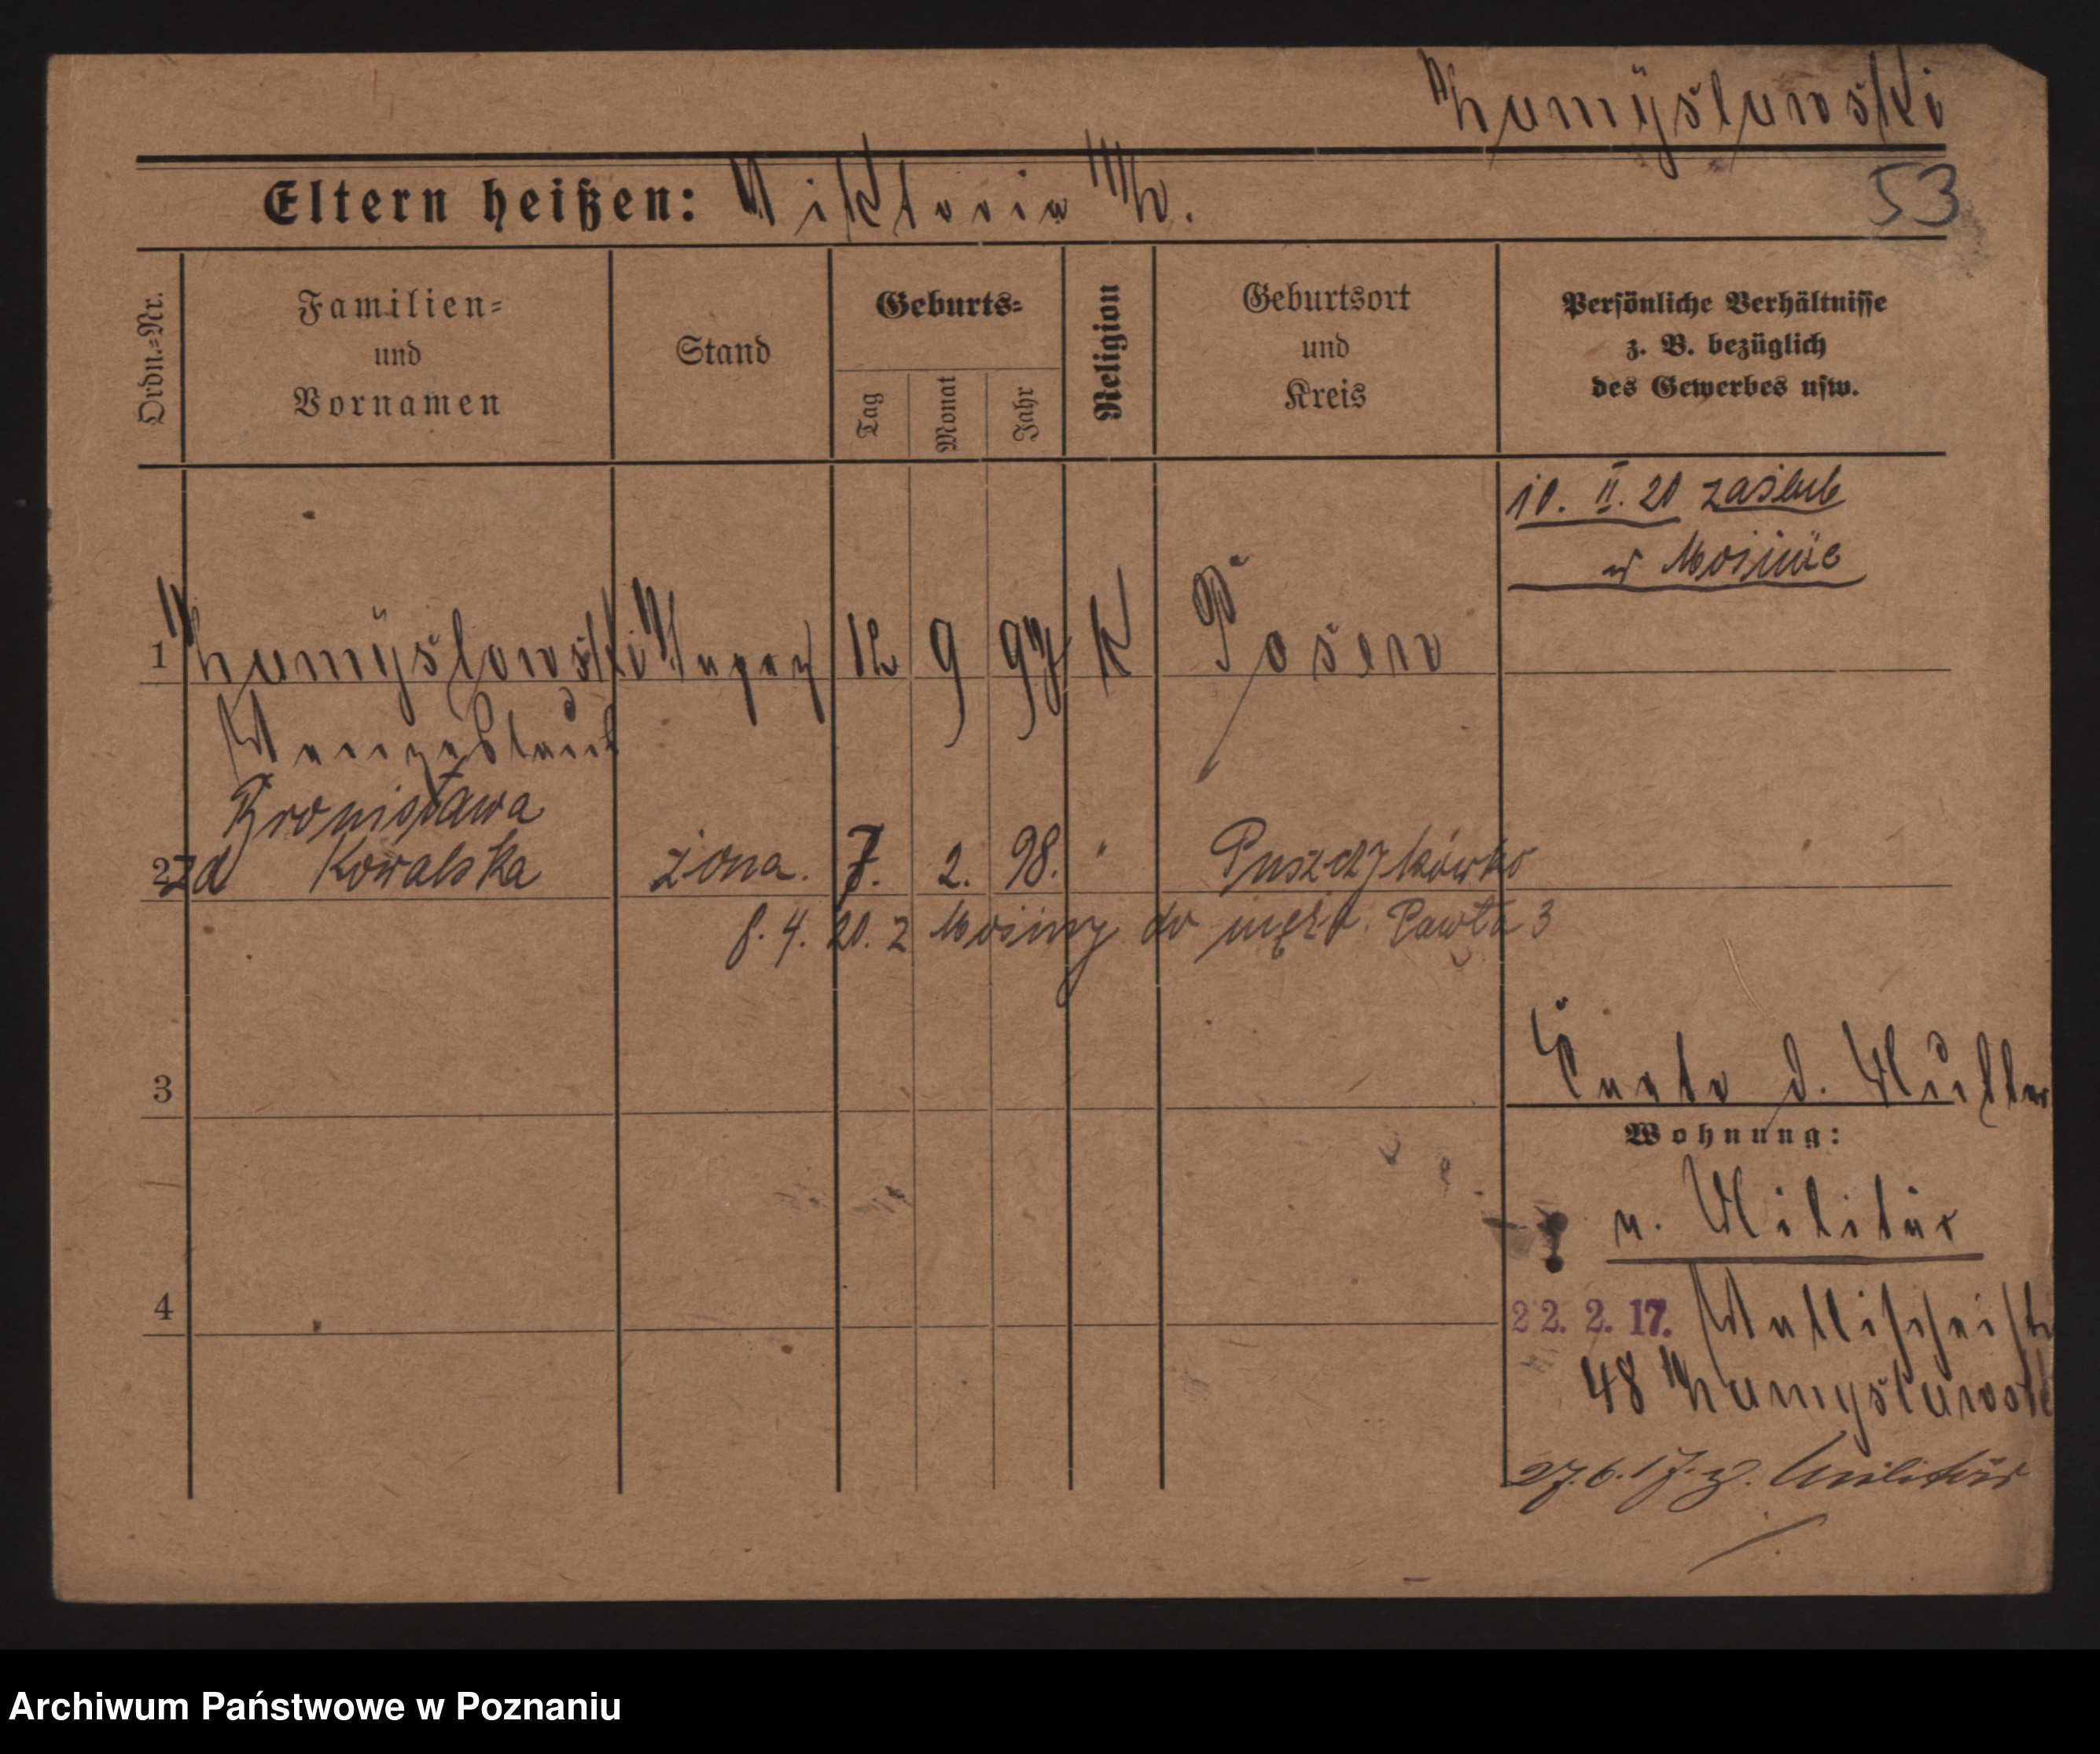 Namysłowski
53
Eltern heißen: Viktoria N.
Ordn.-Nr.
Familien- und Vornamen
Stand
Geburts-
Tag
Monat
Jahr
Religion
Geburtsort und Kreis
Persönliche Verhältnisse
z. B. bezüglich
des Gewerbes usw.
10. II. 20 zaślub
w Mosinie
1 12 9 97 K Posen
Bronisława
2 zd Kowalska żona. 7. 2. 98. " Puszczykówko
8. 4. 20. z Mosiny do męża. Pawła 3
3
Wohnung:
z. Militär
4
22. 2. 17. Wallischei
48
27. 6. 17. z. Militär
Archiwum Państwowe w Poznaniu